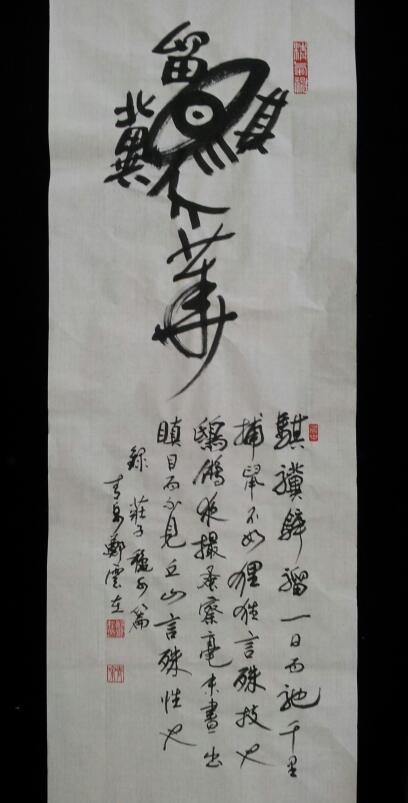 留
其
冀
華
騏驥驊騮一日而馳千里
捕鼠不如狸狌言殊技也
鴟鵂夜撮蚤察毫末晝出
瞋目而不見丘山言殊性也
錄莊子龝水篇
鄭雲在